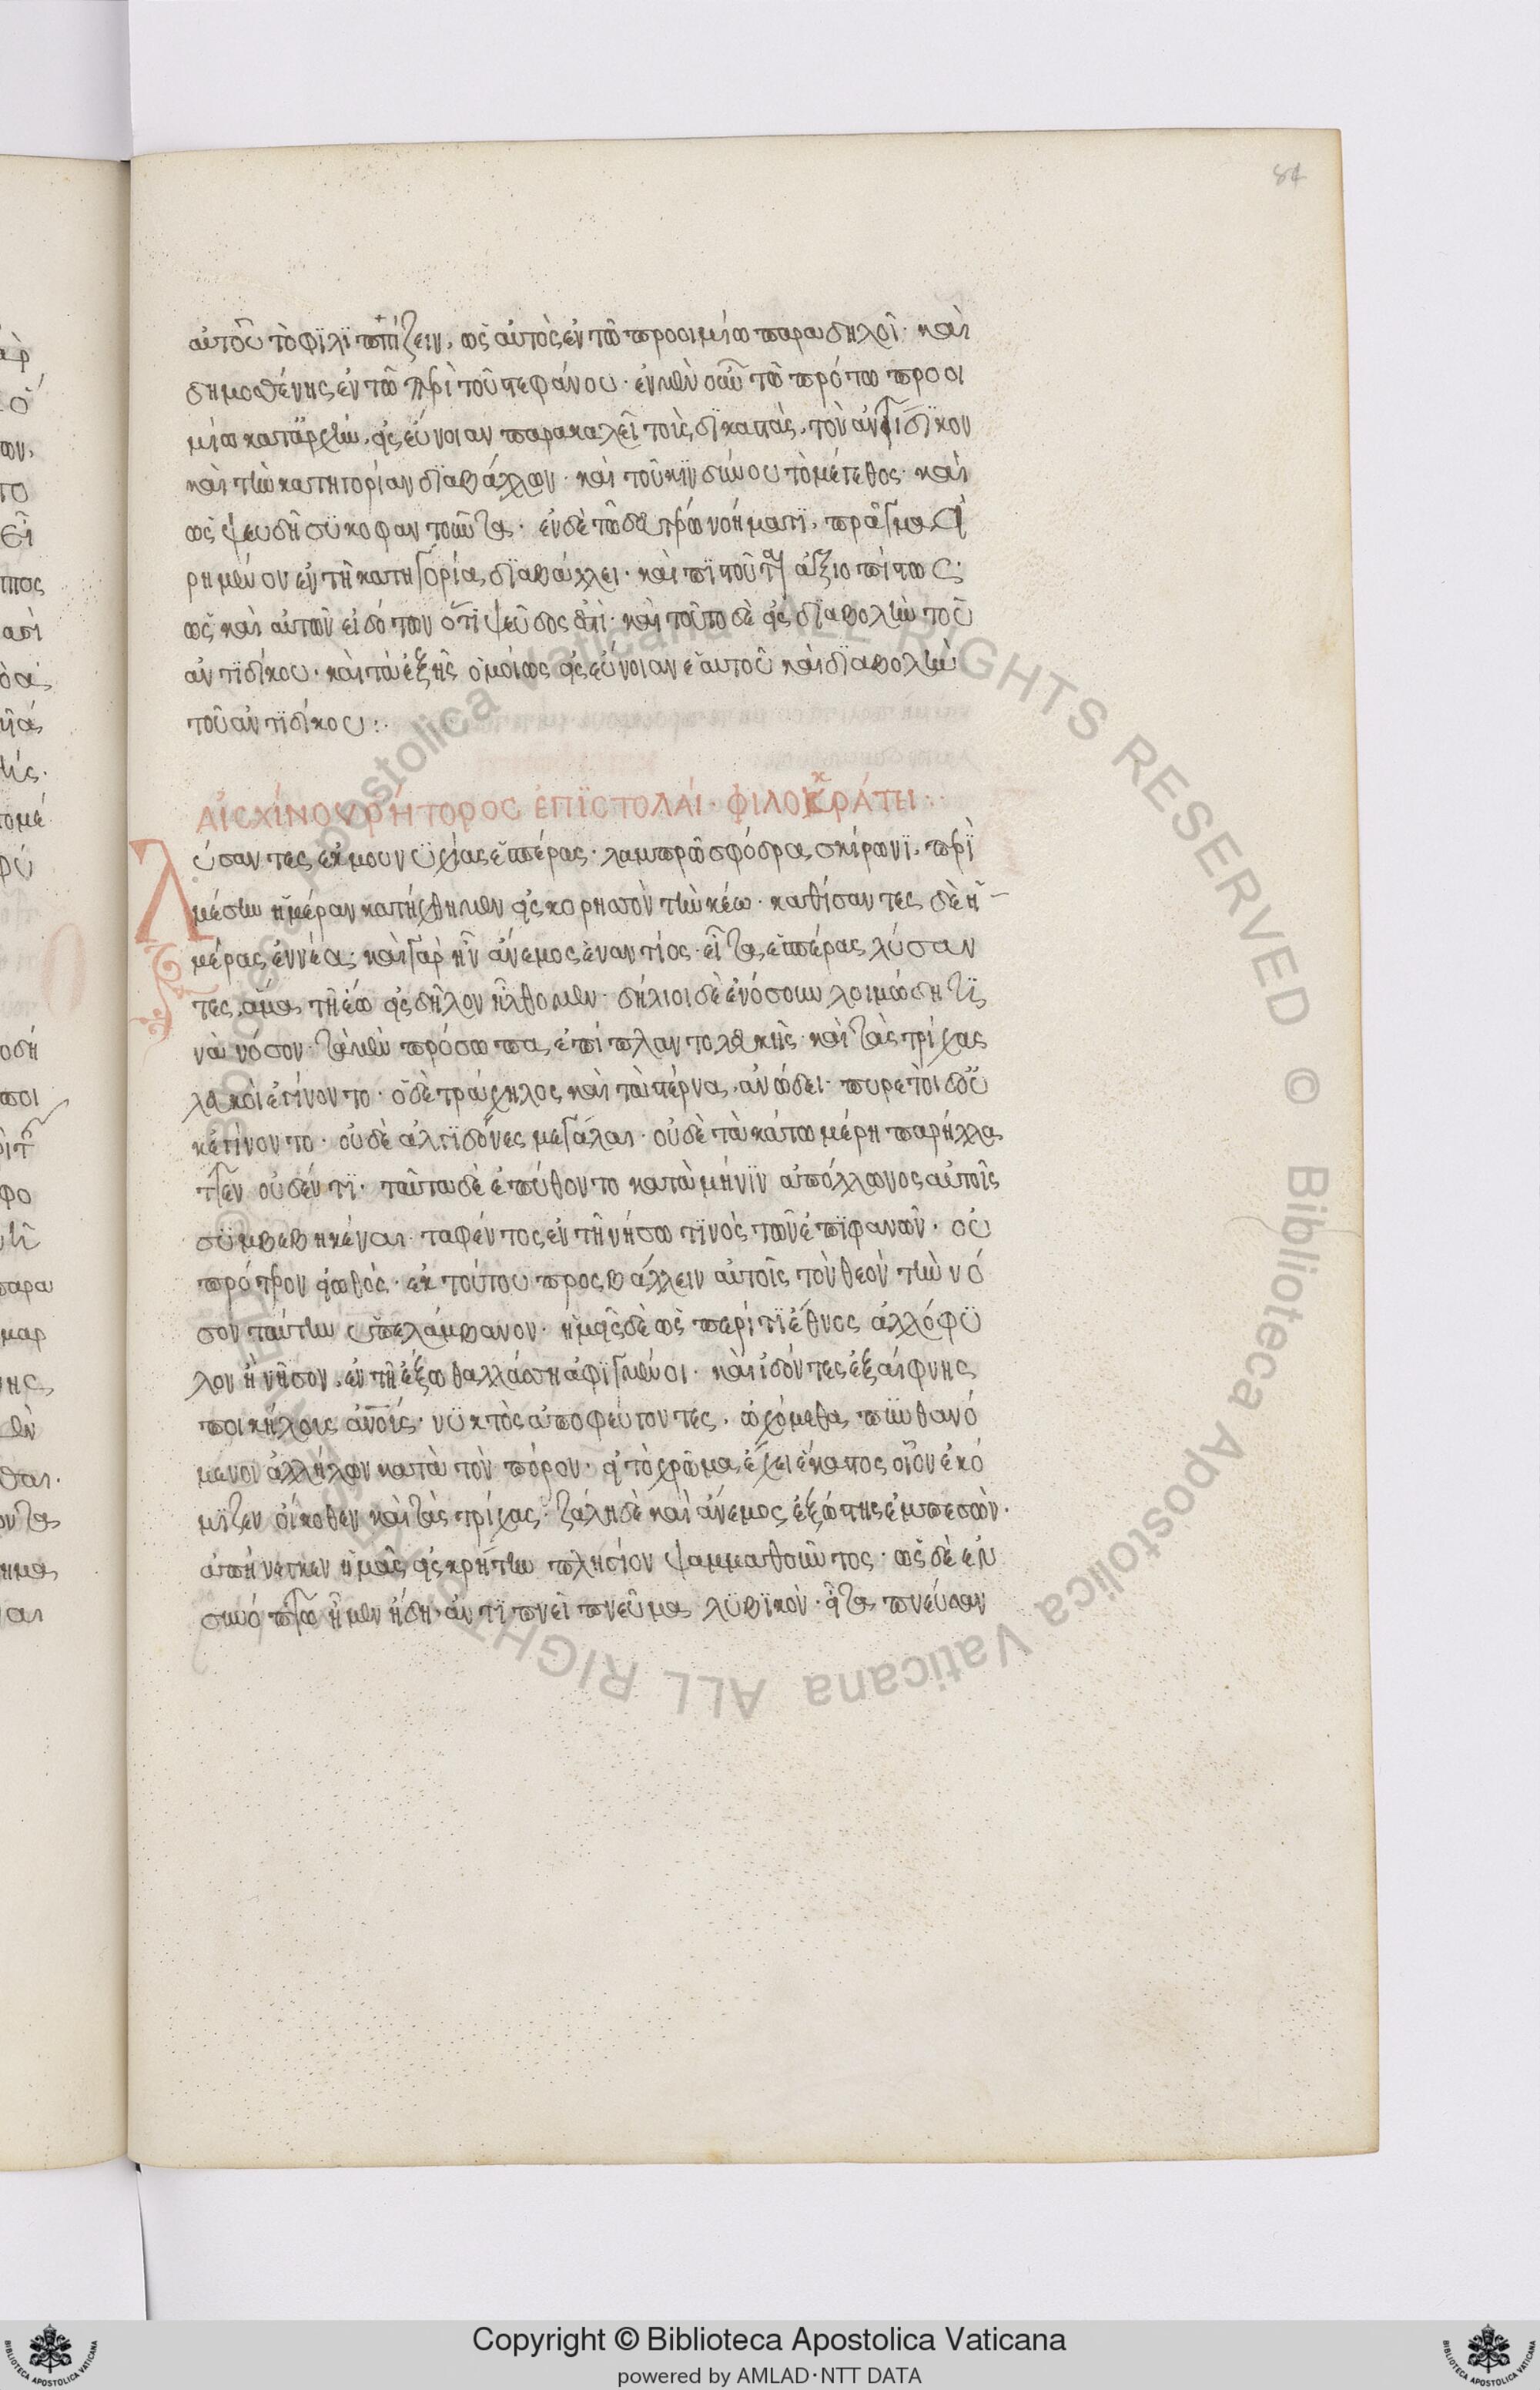 84
αὐτοῦ τὸ φϊλϊππίζειν, ὡς αὐτὸς ἐν τῶ προοιμίω παραδηλοῖ· καὶ
δημοσθένης ἐν τῶ περὶ τοῦ στεφάνου· ἐν μὲν οὖν τῶ πρώτω προοι
μίω κατάρχὴν, εἰς εὔνοιαν παρακαλεῖ τοὺς δϊκαστὰς, τὸν ἀντίδϊκον
καὶ τὴν κατηγορίαν δϊαβάλλων· καὶ τοῦ κϊνδύνου τὸ μέγεθος· καὶ
ὡς ψευδῆ σϋκοφαντοῦντα· ἐν δὲ τῶ δευτέρω νοήματϊ, πρᾶγμα εἰ
ρημένον ἐν τῆ κατηγορία διαβάλλει· καὶ ἀξιοπίστως·
ὡς καὶ αὐτῶν εἰδότων ὅτϊ ψεῦδος ἐστὶ· καὶ τοῦτο δὲ εἰς διαβολὴν τοῦ
ἀντϊδίκου· καὶ τὰ ἑξῆς ὁμοίως εἰς εὔνοιαν ἑαυτοῦ καὶ διαβολὴν
τοῦ ἀντϊδίκου:.
ΑἸΣΧΊΝΟΥ ΡΉΤΟΡΟΣ ἘΠΪΣΤΟΛΑΊ· ΦΙΛΟΚΡΆΤΗ:·
Λύσαντες ἐκ μουνϋχίας ἑσπέρας· λαμπρῶ σφόδρα σκίρωνϊ, περὶ
μέσην ἡμέραν κατήχθημεν εἰς κορησσὸν τὴν κέω· καθίσαντες δὲ ἡ
μέρας ἐννέα· καὶ γὰρ ἦν ἄνεμος ἐναντίος· εἶτα ἑσπέρας λύσαν
τες, ἅμα τῆ ἕω εἰς δῆλον ἤλθομεν· δήλιοι δὲ ἐνόσουν λοιμώδη τϊ
νὰ νόσον· τὰ μὲν πρόσωπα ἐπίπλαντο λευκῆς· καὶ τὰς τρίχας
λευκοὶ ἐγίνοντο· ὁ δὲ τράχηλος καὶ τὰ στέρνα, ἀνώδει· πυρετοὶ δ οὐ
κ ἐγίνοντο· οὐδὲ ἀλγϊδόνες μεγάλαι· οὐδὲ τὰ κάτω μέρη παρήλλα
τγεν οὐδέν τϊ· ταῦτα δὲ ἐπύθοντο κατὰ μῆνϊν ἀπόλλωνος αὐτοῖς
σϋμβεβηκέναι· ταφέντος ἐν τῆ νήσω τϊνὸς τῶν ἐπϊφανῶν· οὐ
πρότερον εἰωθὸς· ἐκ τούτου προσβάλλειν αὐτοῖς τὸν θεὸν τὴν νό
σον ταύτην ὑπελάμβανον· ἡμεῖς δὲ ὡς περί τϊ ἔθνος ἀλλόφϋ
λον ἢ νῆσον, ἐν τῆ ἔξω θαλλάσση ἀφϊγμένοι· καὶ ἰδόντες ἐξαίφνης
ποικήλους ἀνοὺς· νϋκτὸς ἀποφεύγοντες, ὠχόμεθα πυνθανό
μενοι ἀλλήλων κατὰ τὸν πόρον· εἰ τὸ χρῶμα ἔχει ἕκαστος οἷον ἐκό
μϊζεν οἴκοθεν καὶ τὰς τρίχας· ζάλη δὲ καὶ ἄνεμος ἐξώστης ἐμπεσὼν·
ἀπήνεγκεν ἡμᾶς εἰς κρήτην πλησίον ψαμμαθοῦντος· ὡς δὲ ἐν
συνόπτω ἦμεν ἤδη· ἀντϊπνεῖ πνεῦμα λϋβϊκὸν· εἶτα πνεύσαν
Copyright © Biblioteca Apostolica Vaticana
powered by AMLAD·NTT DATA